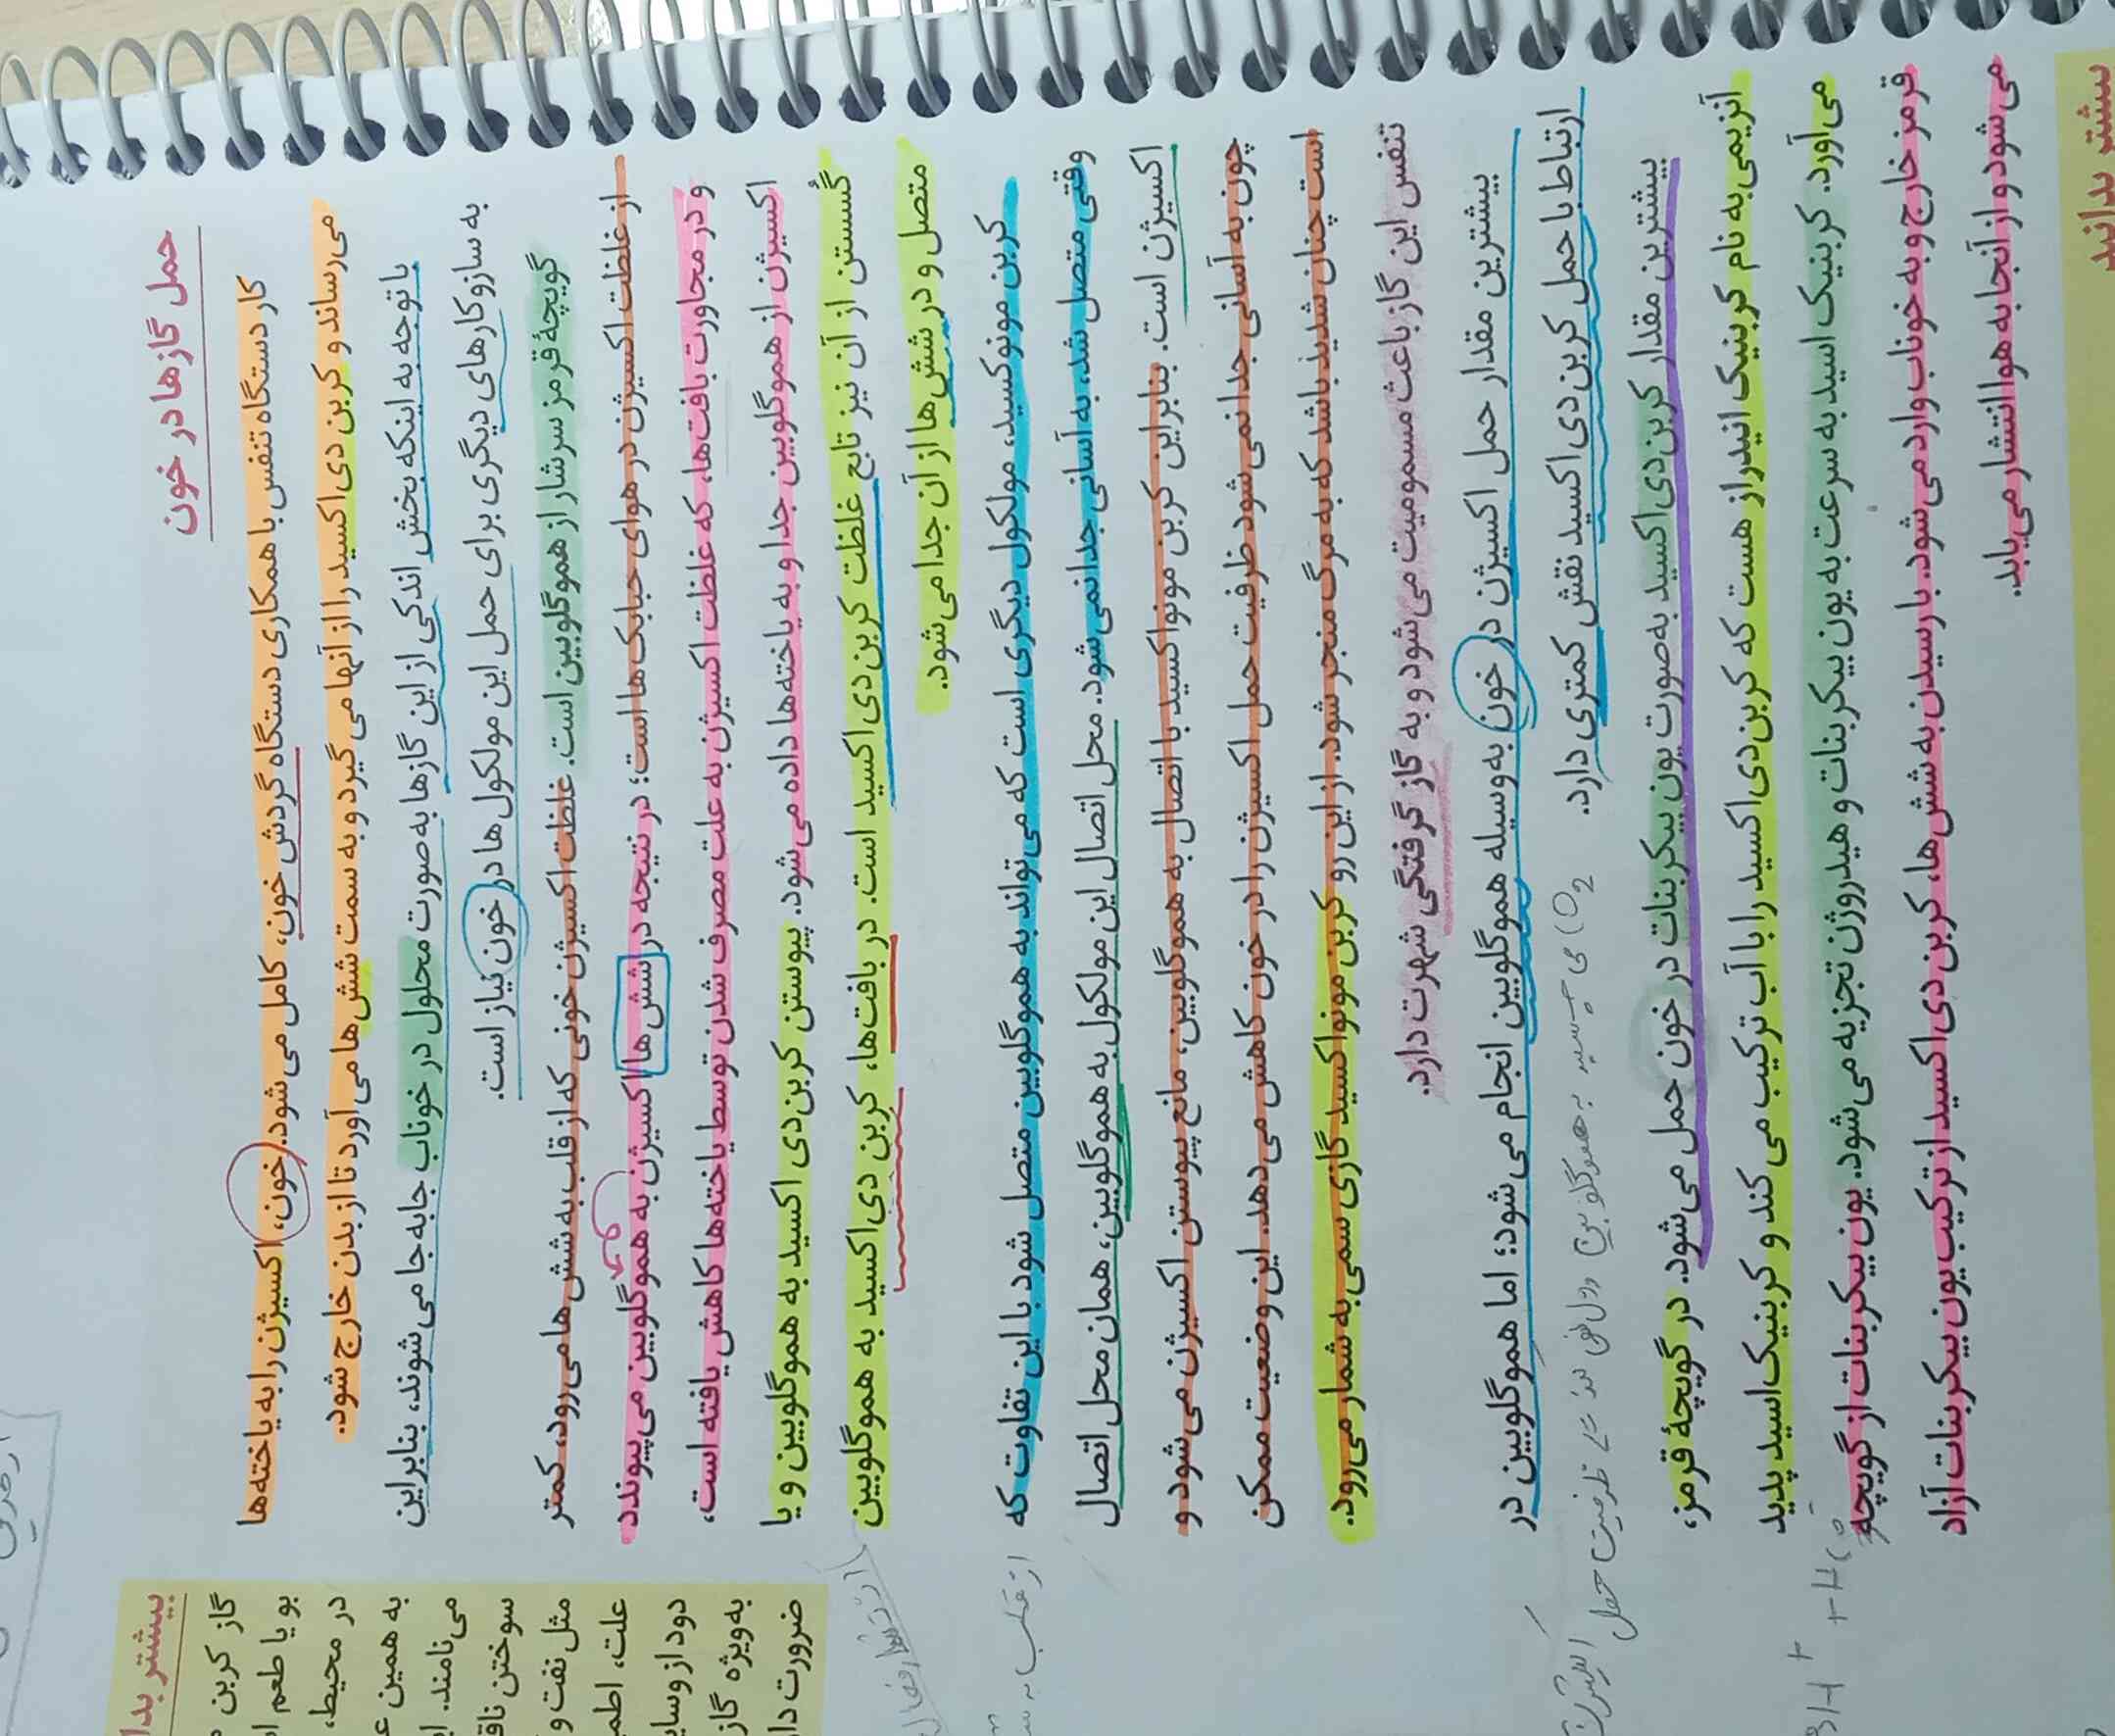 حمل گازها در خون
کار دستگاه تنفس با همکاری دستگاه گردش خون، کامل می‌شود. خون، اکسیژن را به یاخته‌ها
می‌رساند و کربن دی‌اکسید را از آنها می‌گیرد و به سمت شش‌ها می‌آورد تا از بدن خارج شود.
با توجه به اینکه بخش اندکی از این گازها به صورت محلول در خوناب جابه‌جا می‌شوند، بنابراین
به سازوکارهای دیگری برای حمل این مولکول‌ها در خون نیاز است.
گویچهٔ قرمز سرشار از هموگلوبین است. غلظت اکسیژن خونی که از قلب به شش‌ها می‌رود، کمتر
از غلظت اکسیژن در هوای حبابک‌ها است؛ در نتیجه در شش‌ها اکسیژن به هموگلوبین می‌پیوندد
و در مجاورت بافت‌ها، که غلظت اکسیژن به علت مصرف شدن توسط یاخته‌ها کاهش یافته است،
اکسیژن از هموگلوبین جدا و به یاخته‌ها داده می‌شود. پیوستن کربن دی اکسید به هموگلوبین و یا
گسستن از آن نیز تابع غلظت کربن دی اکسید است. در بافت‌ها، کربن دی اکسید به هموگلوبین
متصل و در شش‌ها از آن جدا می‌شود.
کربن مونوکسید، مولکول دیگری است که می‌تواند به هموگلوبین متصل شود با این تفاوت که
وقتی متصل شد، به آسانی جدا نمی‌شود. محل اتصال این مولکول به هموگلوبین، همان محل اتصال
اکسیژن است. بنابراین کربن مونواکسید با اتصال به هموگلوبین، مانع پیوستن اکسیژن می‌شود و
چون به آسانی جدا نمی‌شود ظرفیت حمل اکسیژن را در خون کاهش می‌دهد. این وضعیت ممکن
است چنان شدید باشد که به مرگ منجر شود. از این رو کربن مونواکسید گازی سمی به شمار می‌رود.
تنفس این گاز باعث مسمومیت می‌شود و به گاز گرفتگی شهرت دارد.
بیشترین مقدار حمل اکسیژن در خون به وسیله هموگلوبین انجام می‌شود؛ اما هموگلوبین در
ارتباط با حمل کربن دی اکسید نقش کمتری دارد.
بیشترین مقدار کربن دی‌اکسید به صورت یون بیکربنات در خون حمل می‌شود. در گویچهٔ قرمز،
آنزیمی به نام کربنیک انیدراز هست که کربن دی‌اکسید را با آب ترکیب می‌کند و کربنیک اسید پدید
می‌آورد. کربنیک اسید به سرعت به یون بیکربنات و هیدروژن تجزیه می‌شود. یون بیکربنات از گویچه
قرمز خارج و به خوناب وارد می‌شود. با رسیدن به شش‌ها، کربن دی اکسید از ترکیب یون بیکربنات آزاد
می‌شود و از آنجا به هوا انتشار می‌یابد.
بیشتر بدانید
بیشتر بدا
گاز کربن
بو یا طعم
در محیط،
به همین
می‌نامند.
سوختن ناق
مثل نفت و
علت، اطم
دود از وسای
به‌ویژه گاز
ضرورت دار
از قلب به